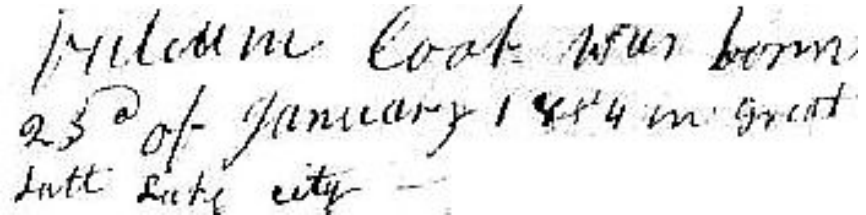 Cook was born
23d of January 1854 in great
Salt Lake city —